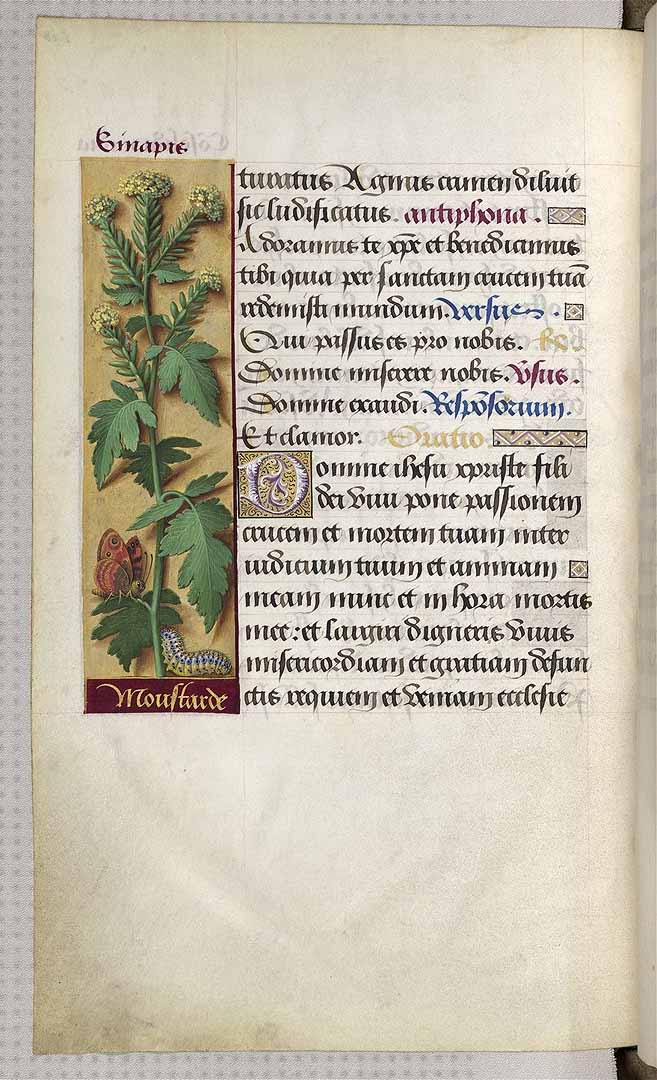 Sinapis
turatus Agnus crimen diluit
sic ludificatus. antiphona.
Adoramus te xpe et benedicimus
tibi quia per sanctam crucem tuã
redemisti mundum. versus.
Qui passus es pro nobis. Rs.
Domine miserere nobis. Vsus.
Domine exaudi. Respõsorium.
Et clamor. Oratio
Domine ihesu xpriste fili
dei viui pone passionem
crucem et mortem tuam inter
iudicium tuum et animam
meam nunc et in hora mortis
mee: et largiri digneris viuis
misericordiam et gratiam defun
ctis requiem et veniam ecclesie
Moustarde